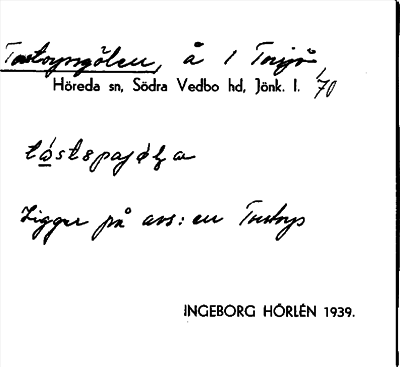 Tostorpsgölen, å 1 Torsjö
Höreda sn, Södra Vedbo hd, Jönk. l. 70
Ligger på avs: en Tostorp
INGEBORG HÖRLÉN 1939.